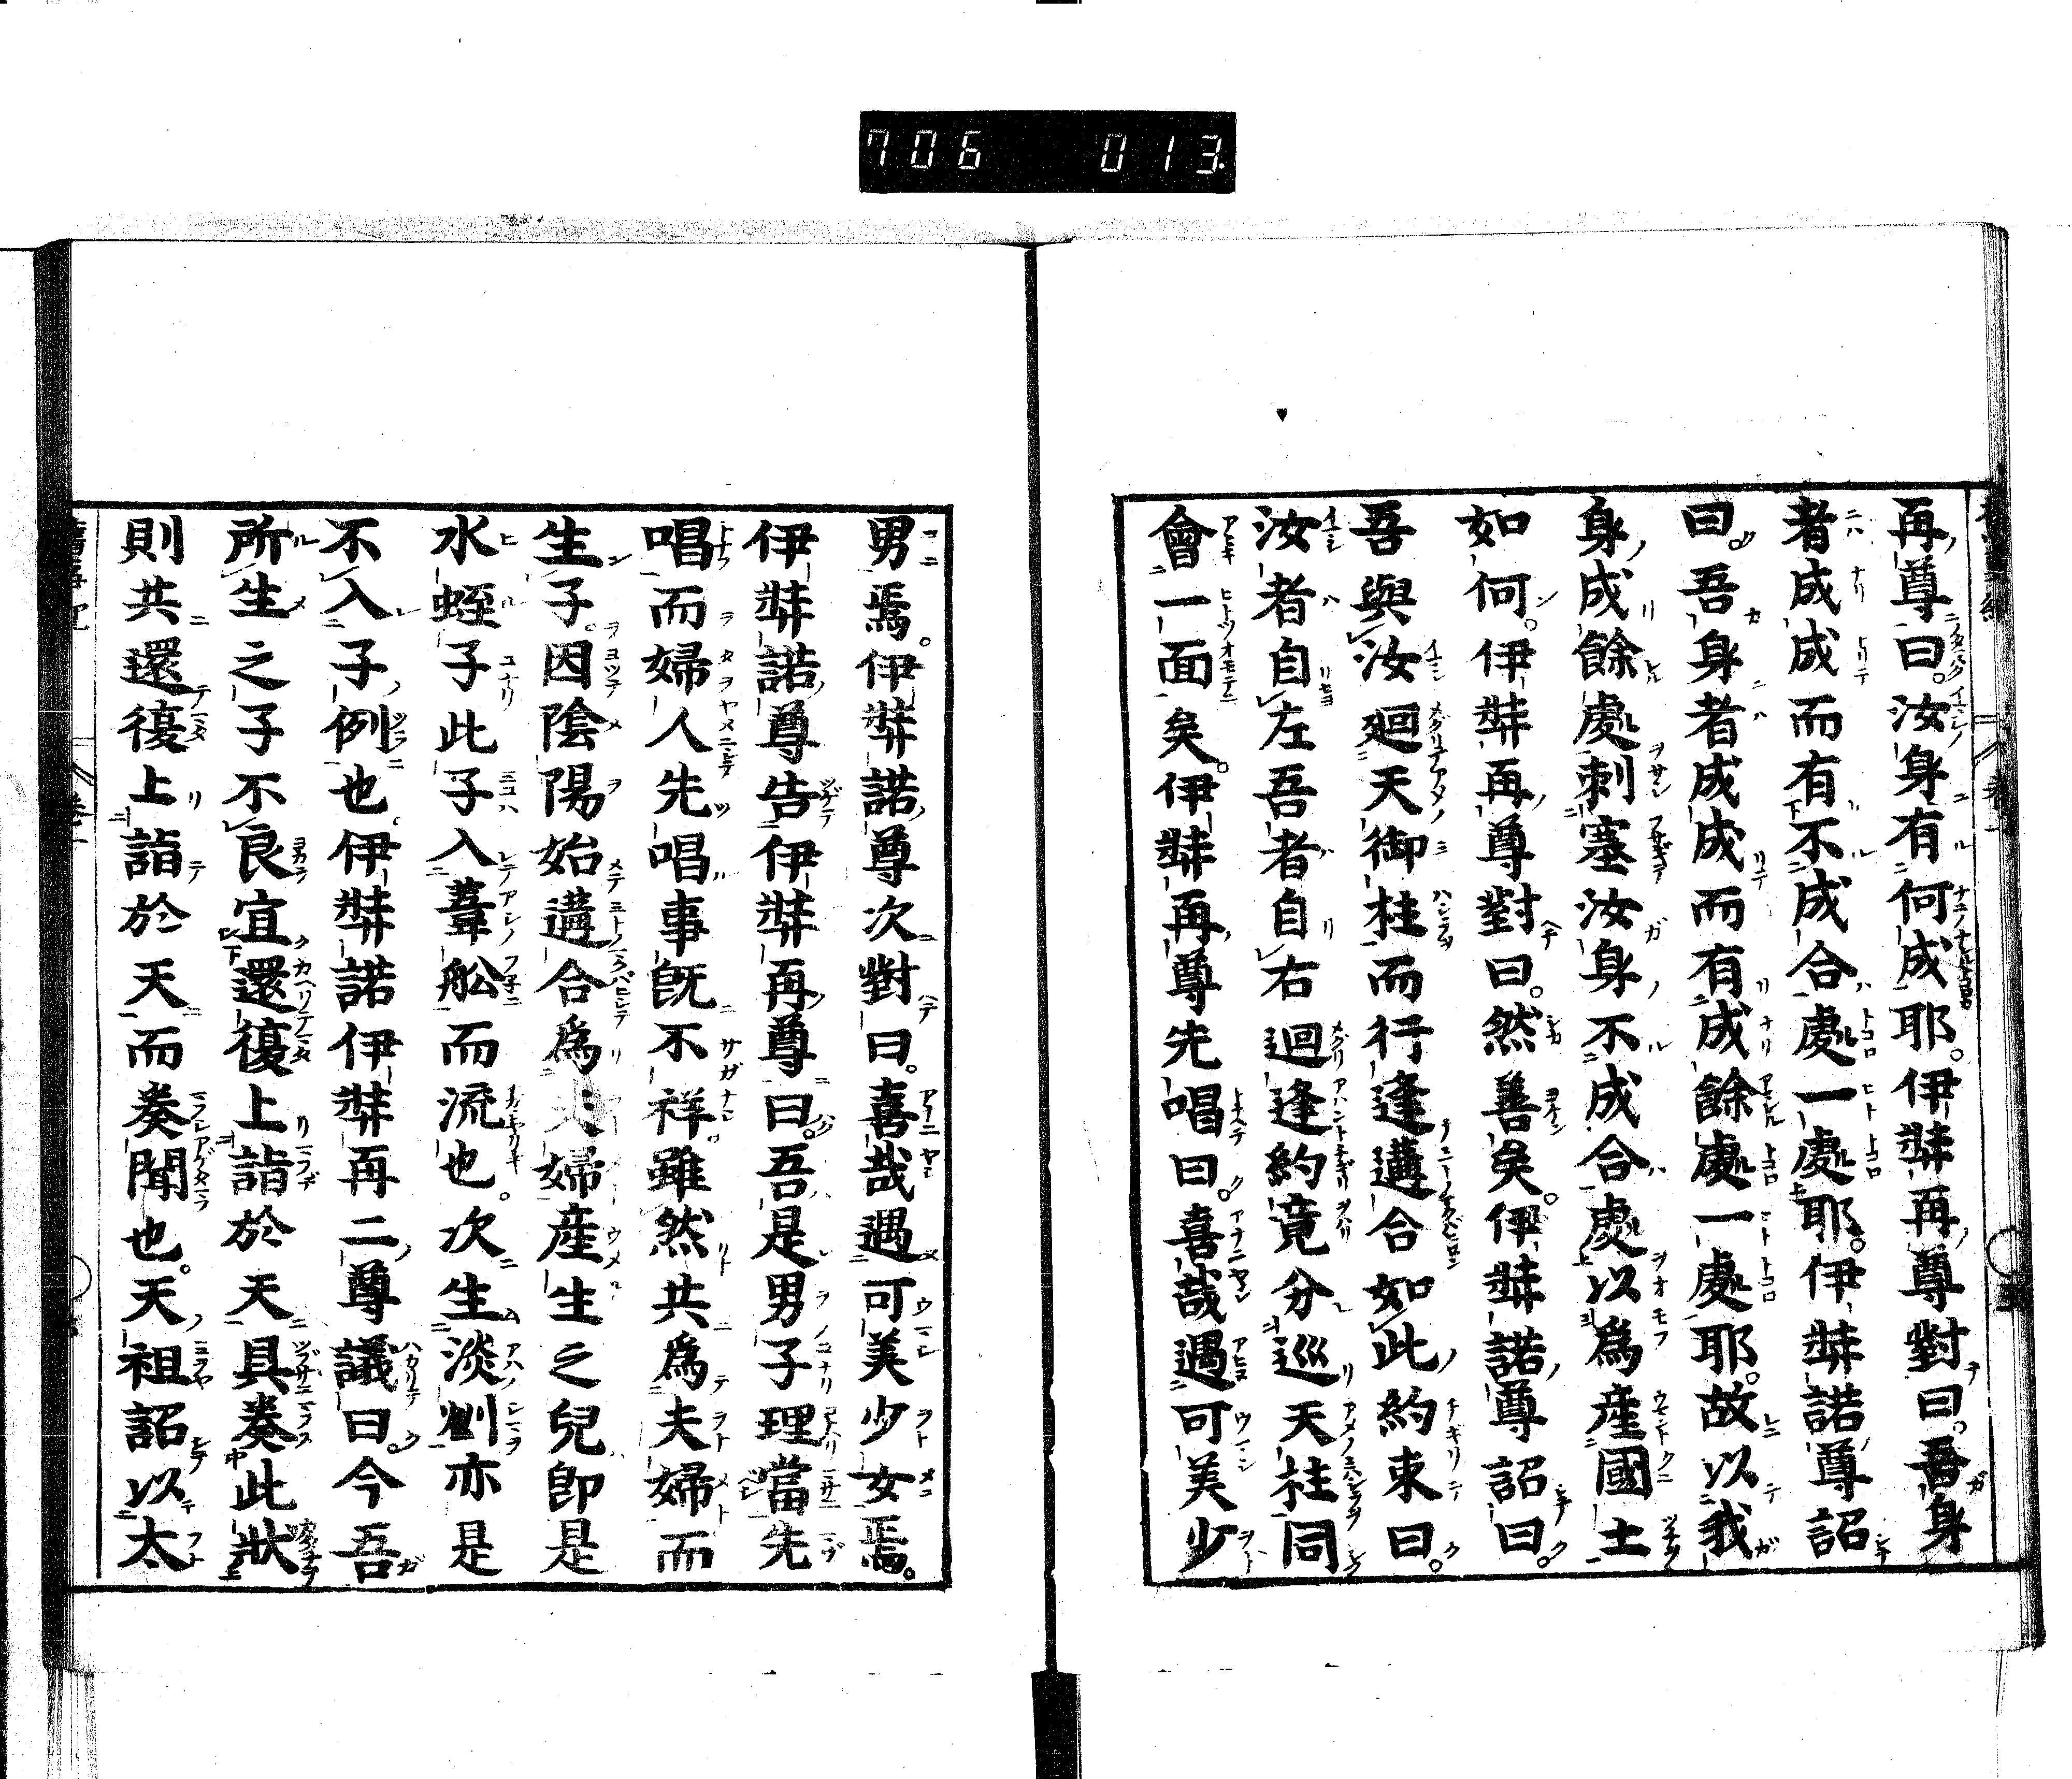 706 013
再尊曰。汝身有何成耶。伊弉再尊對曰。吾身
者成成而有不成合處一處耶。伊弉諾尊詔
曰。吾身者成成而有成餘處一處耶。故以我
身成餘處刺塞汝身不成合處以為產國土
如何。伊弉再尊對曰。然善矣。伊弉諾尊詔曰。
吾與汝廻天御柱而行逢遘合如此約束曰。
汝者自左吾者自右廻逢約竟分巡天柱同
會一面矣。伊弉再尊先唱曰。喜哉遇可美少
男焉。伊弉諾尊次對曰。喜哉遇可美少女焉。
伊弉諾尊告伊弉再尊曰。吾是男子理當先
唱而婦人先唱事既不祥。雖然共為夫婦而
生子。因陰陽始遘合為夫婦產生之兒即是
水蛭子此子入葦舩而流也。次生淡州亦是
不入子例也。伊弉諾伊弉再二尊議曰。今吾
所生之子不良宜還復上詣於天具奏此狀
則共還復上詣於天而奏聞也。天祖詔以太